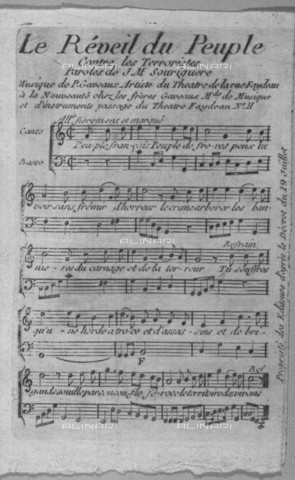 Le Réveil du Peuple
Contre les Terroristes
Paroles de J.M Souriguere
Musique de P. Gaveaux Artiste du Théatre de la rue Faydeau
à la Nouveauté chez les frères Gaveaux Mds de Musique
et d'instruments passage du Théatre Faydeau No. 11
All° fierement et marqué
Canto
Peuple français Peuple de freres peux tu
Basso
ALINARI
voir sans fremir Lhorreur le crime arborer les ban
Refrain
nie res du carnage et de la ter reur Tu souffres
ALINARI
qu'u ne horde atroce et d'assas sins et de bri
F
Ref
gands souille par son souffle fé roce le territoire des vivans
ALINARI
Propriété des Editeurs d'après le Décret du 19 Juillet